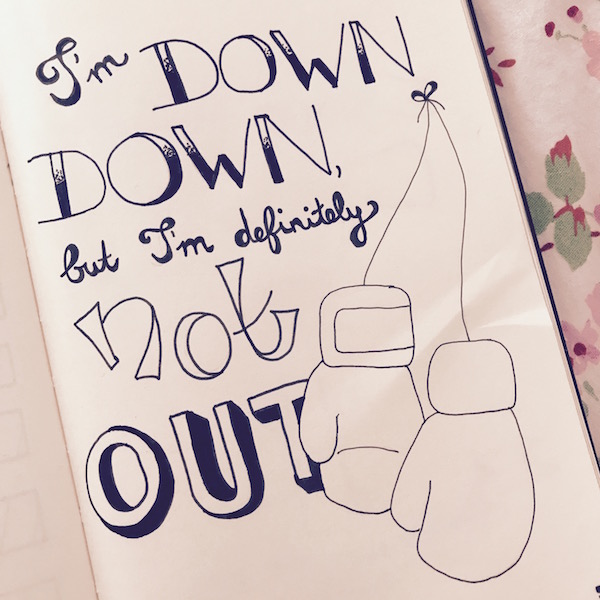 I'm DOWN
DOWN,
but I'm definitely
not
OUT